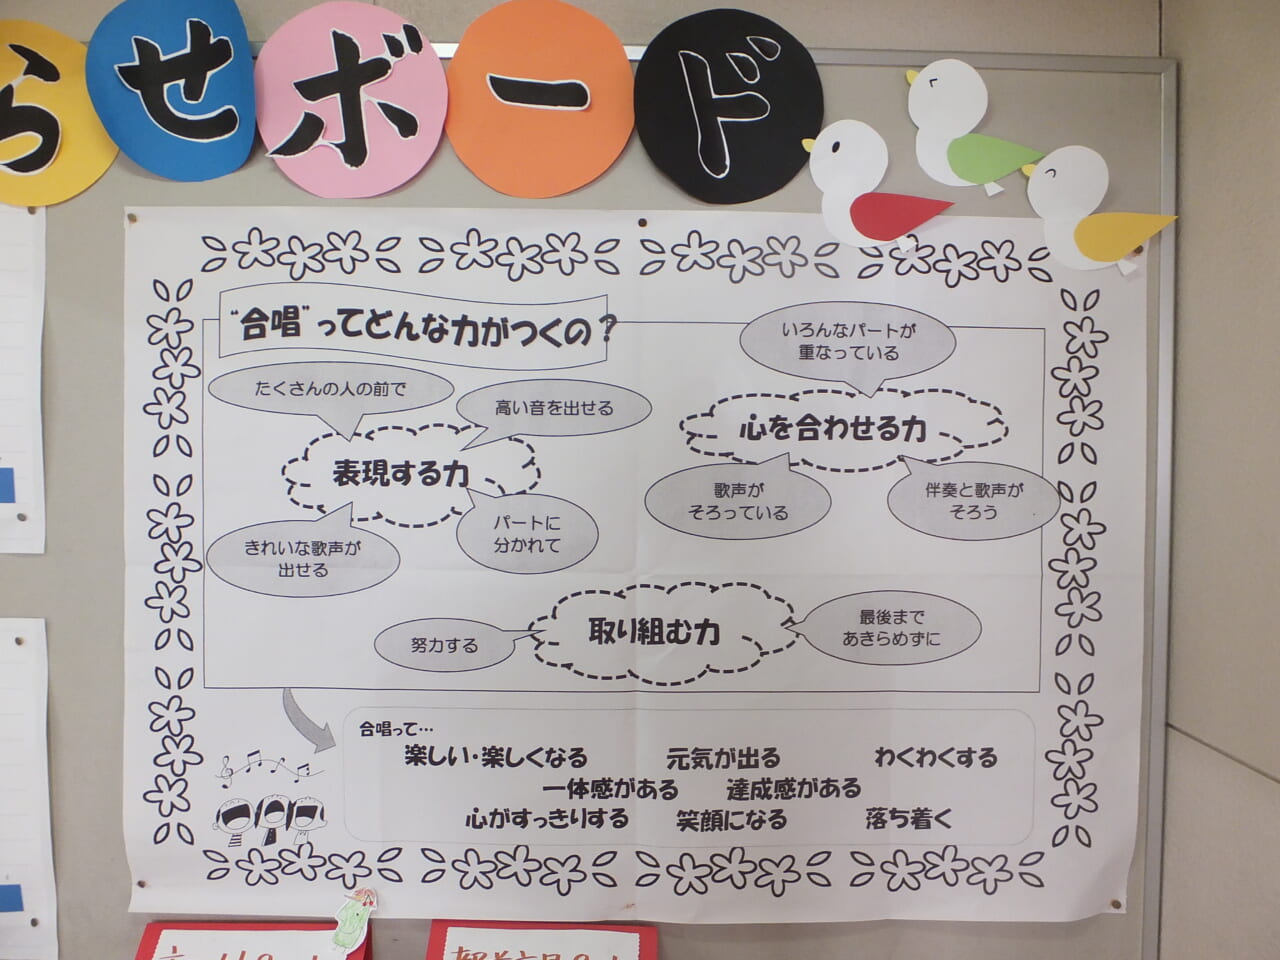 らせボード
“合唱”ってどんな力がつくの？
たくさんの人の前で
高い音を出せる
表現する力
きれいな歌声が
出せる
パートに
分かれて
いろんなパートが
重なっている
心を合わせる力
歌声が
そろっている
伴奏と歌声が
そろう
取り組む力
努力する
最後まで
あきらめずに
合唱って…
楽しい・楽しくなる 元気が出る わくわくする
一体感がある 達成感がある
心がすっきりする 笑顔になる 落ち着く